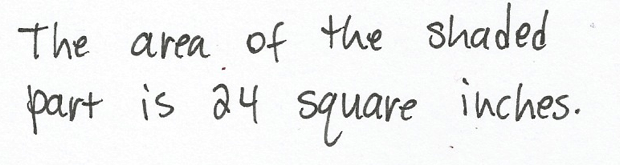 The area of the shaded
part is 24 square inches.